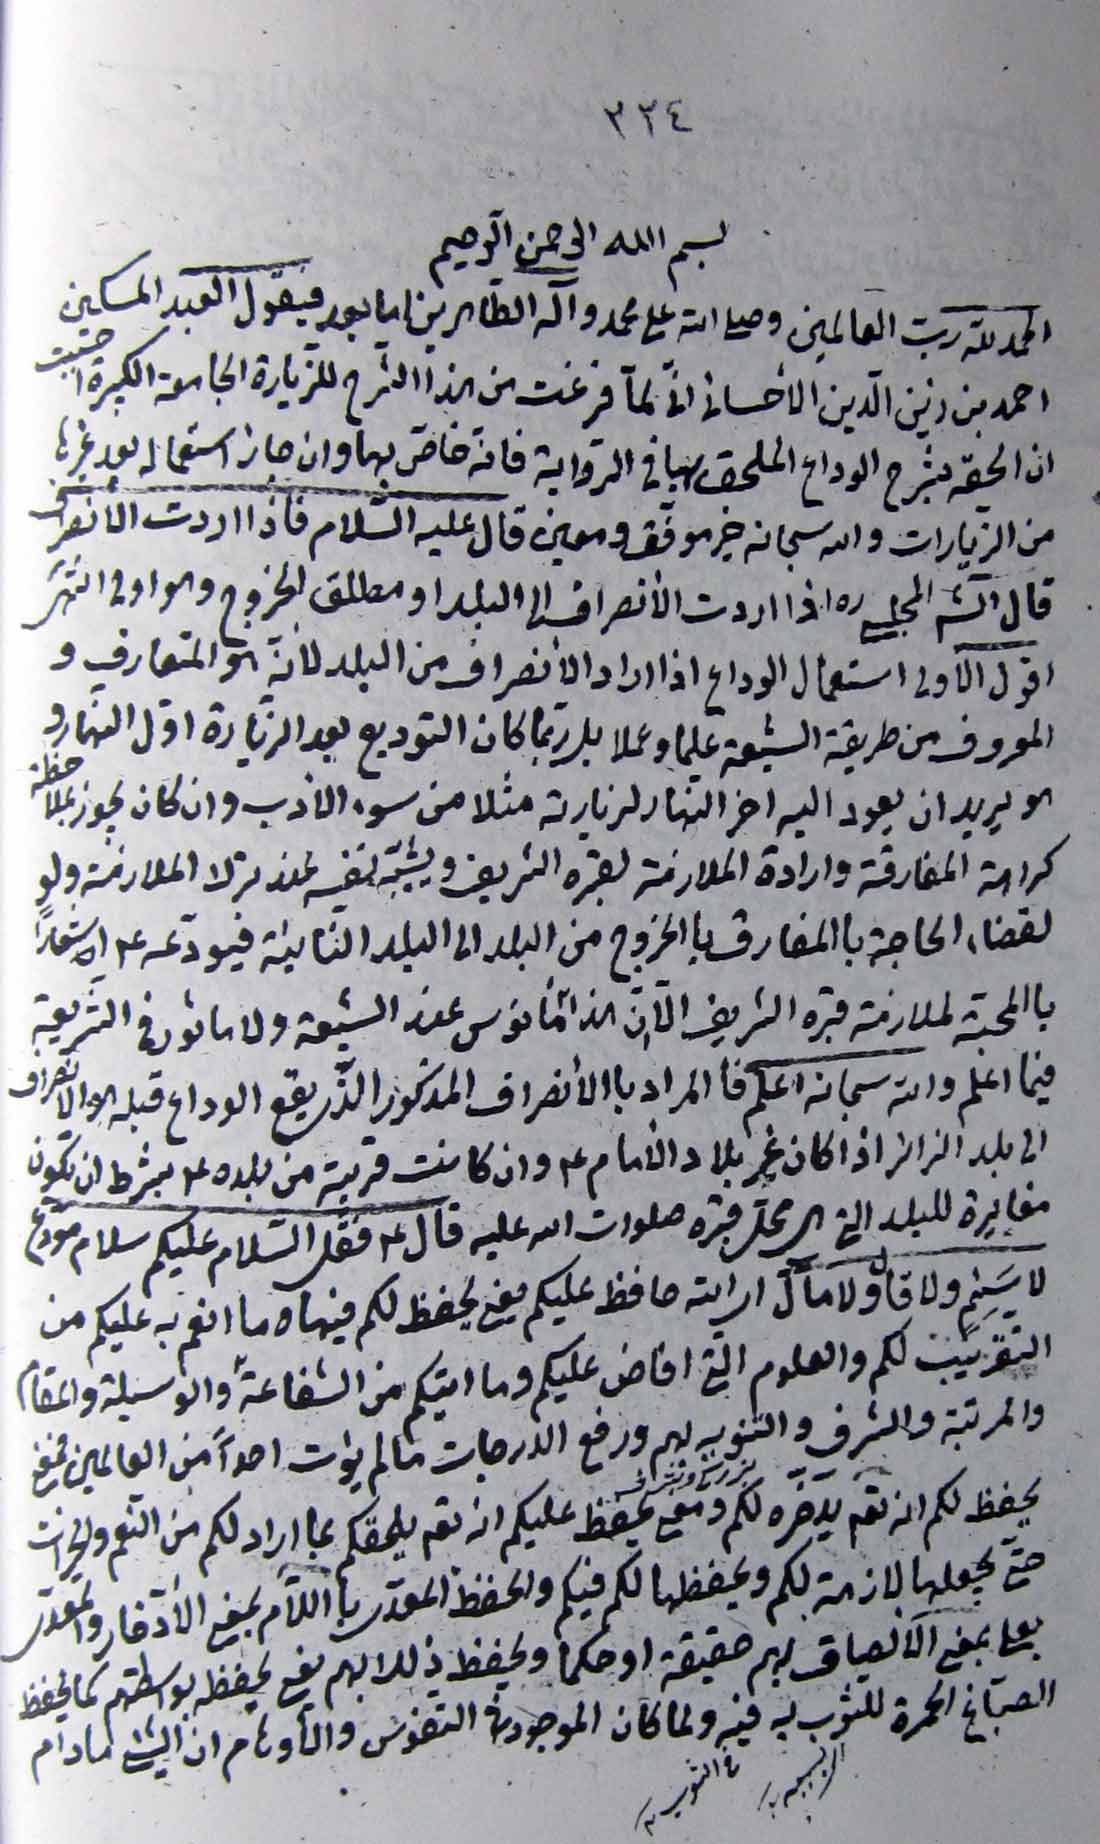 ٣٣٤
بسم الله الرحمن الرحيم
الحمد لله رب العالمين وصلى الله على محمد وآله الطاهرين اما بعد فيقول العبد المسكين
احمد بن زين الدين الاحسائى انى لما فرغت من هذا الشرح للزيارة الجامعة الكبيرة احببت
ان الحقه بشرح الوداع الملحق بها فى الرواية فانه خاص بها وان جاز استعماله بعد غيرها
من الزيارات والله سبحانه خير موفق ومعين قال عليه السلام فاذا اردت الانصراف
قال الش المجلسى ره اذا اردت الانصراف الى البلد او مطلق الخروج وهو اولى انتهى
اقول الاولى استعمال الوداع اذا اراد الانصراف من البلد لانه هو المتعارف و
المعروف من طريقة الشيعة علما وعملا بل ربما كان التوديع بعد الزيارة اول النهار و
هو يريد ان يعود اليه اخر النهار لزيارته مثلا من سوء الأدب وان كان يجوز بملاحظة
كراهة المفارقة وارادة الملازمة لقبره الشريف ويشبه نفسه عند ترك الملازمة ولو
لقضاء الحاجة بالمفارق بالخروج من البلد الى البلد النائية فيودعه ع استشعارا
بالمحبة لملازمة قبره الشريف الا ان هذا مأنوس عند الشيعة ولا ماثور فى الشريعة
فيما اعلم والله سبحانه اعلم فالمراد بالانصراف المذكور الذى يقع الوداع قبله هو الانصراف
الى بلد الزائر اذا كان غير بلاد الامام ع وان كانت قريبة من بلده ع بشرط ان تكون
مغايرة للبلد التى هى محل قبره صلوات الله عليه قال ع فقل السلام عليكم سلام مودع
لا سئم ولا قال ولا مال اى الله حافظ عليكم يعنى يحفظ لكم فيها ما انعم به عليكم من
التقريب لكم والعلوم التى افاض عليكم وما اتيكم من الشفاعة والوسيلة والمقام
والمرتبة والشرف والتنويه بهم ورفع الدرجات ما لم يؤت احدا من العالمين فمعنى
يحفظ لكم انه تعم يدخره لكم ومعنى يحفظ عليكم انه تعم يلحقكم بما اراد لكم من النعم والخيرات
حتى يجعلها لازمة لكم ويحفظها لكم فيكم والحفظ المعدى باللام بمعنى الادخار والمعدى
بعلى بمعنى الالصاق بهم حقيقة او حكما ويحفظ ذلك بهم يعنى يحفظه بواسطتهم كما يحفظ
الصباغ الحمرة للثوب به فيه ولما كان الموجود فى النفوس والاوهام ان الشئ مادام